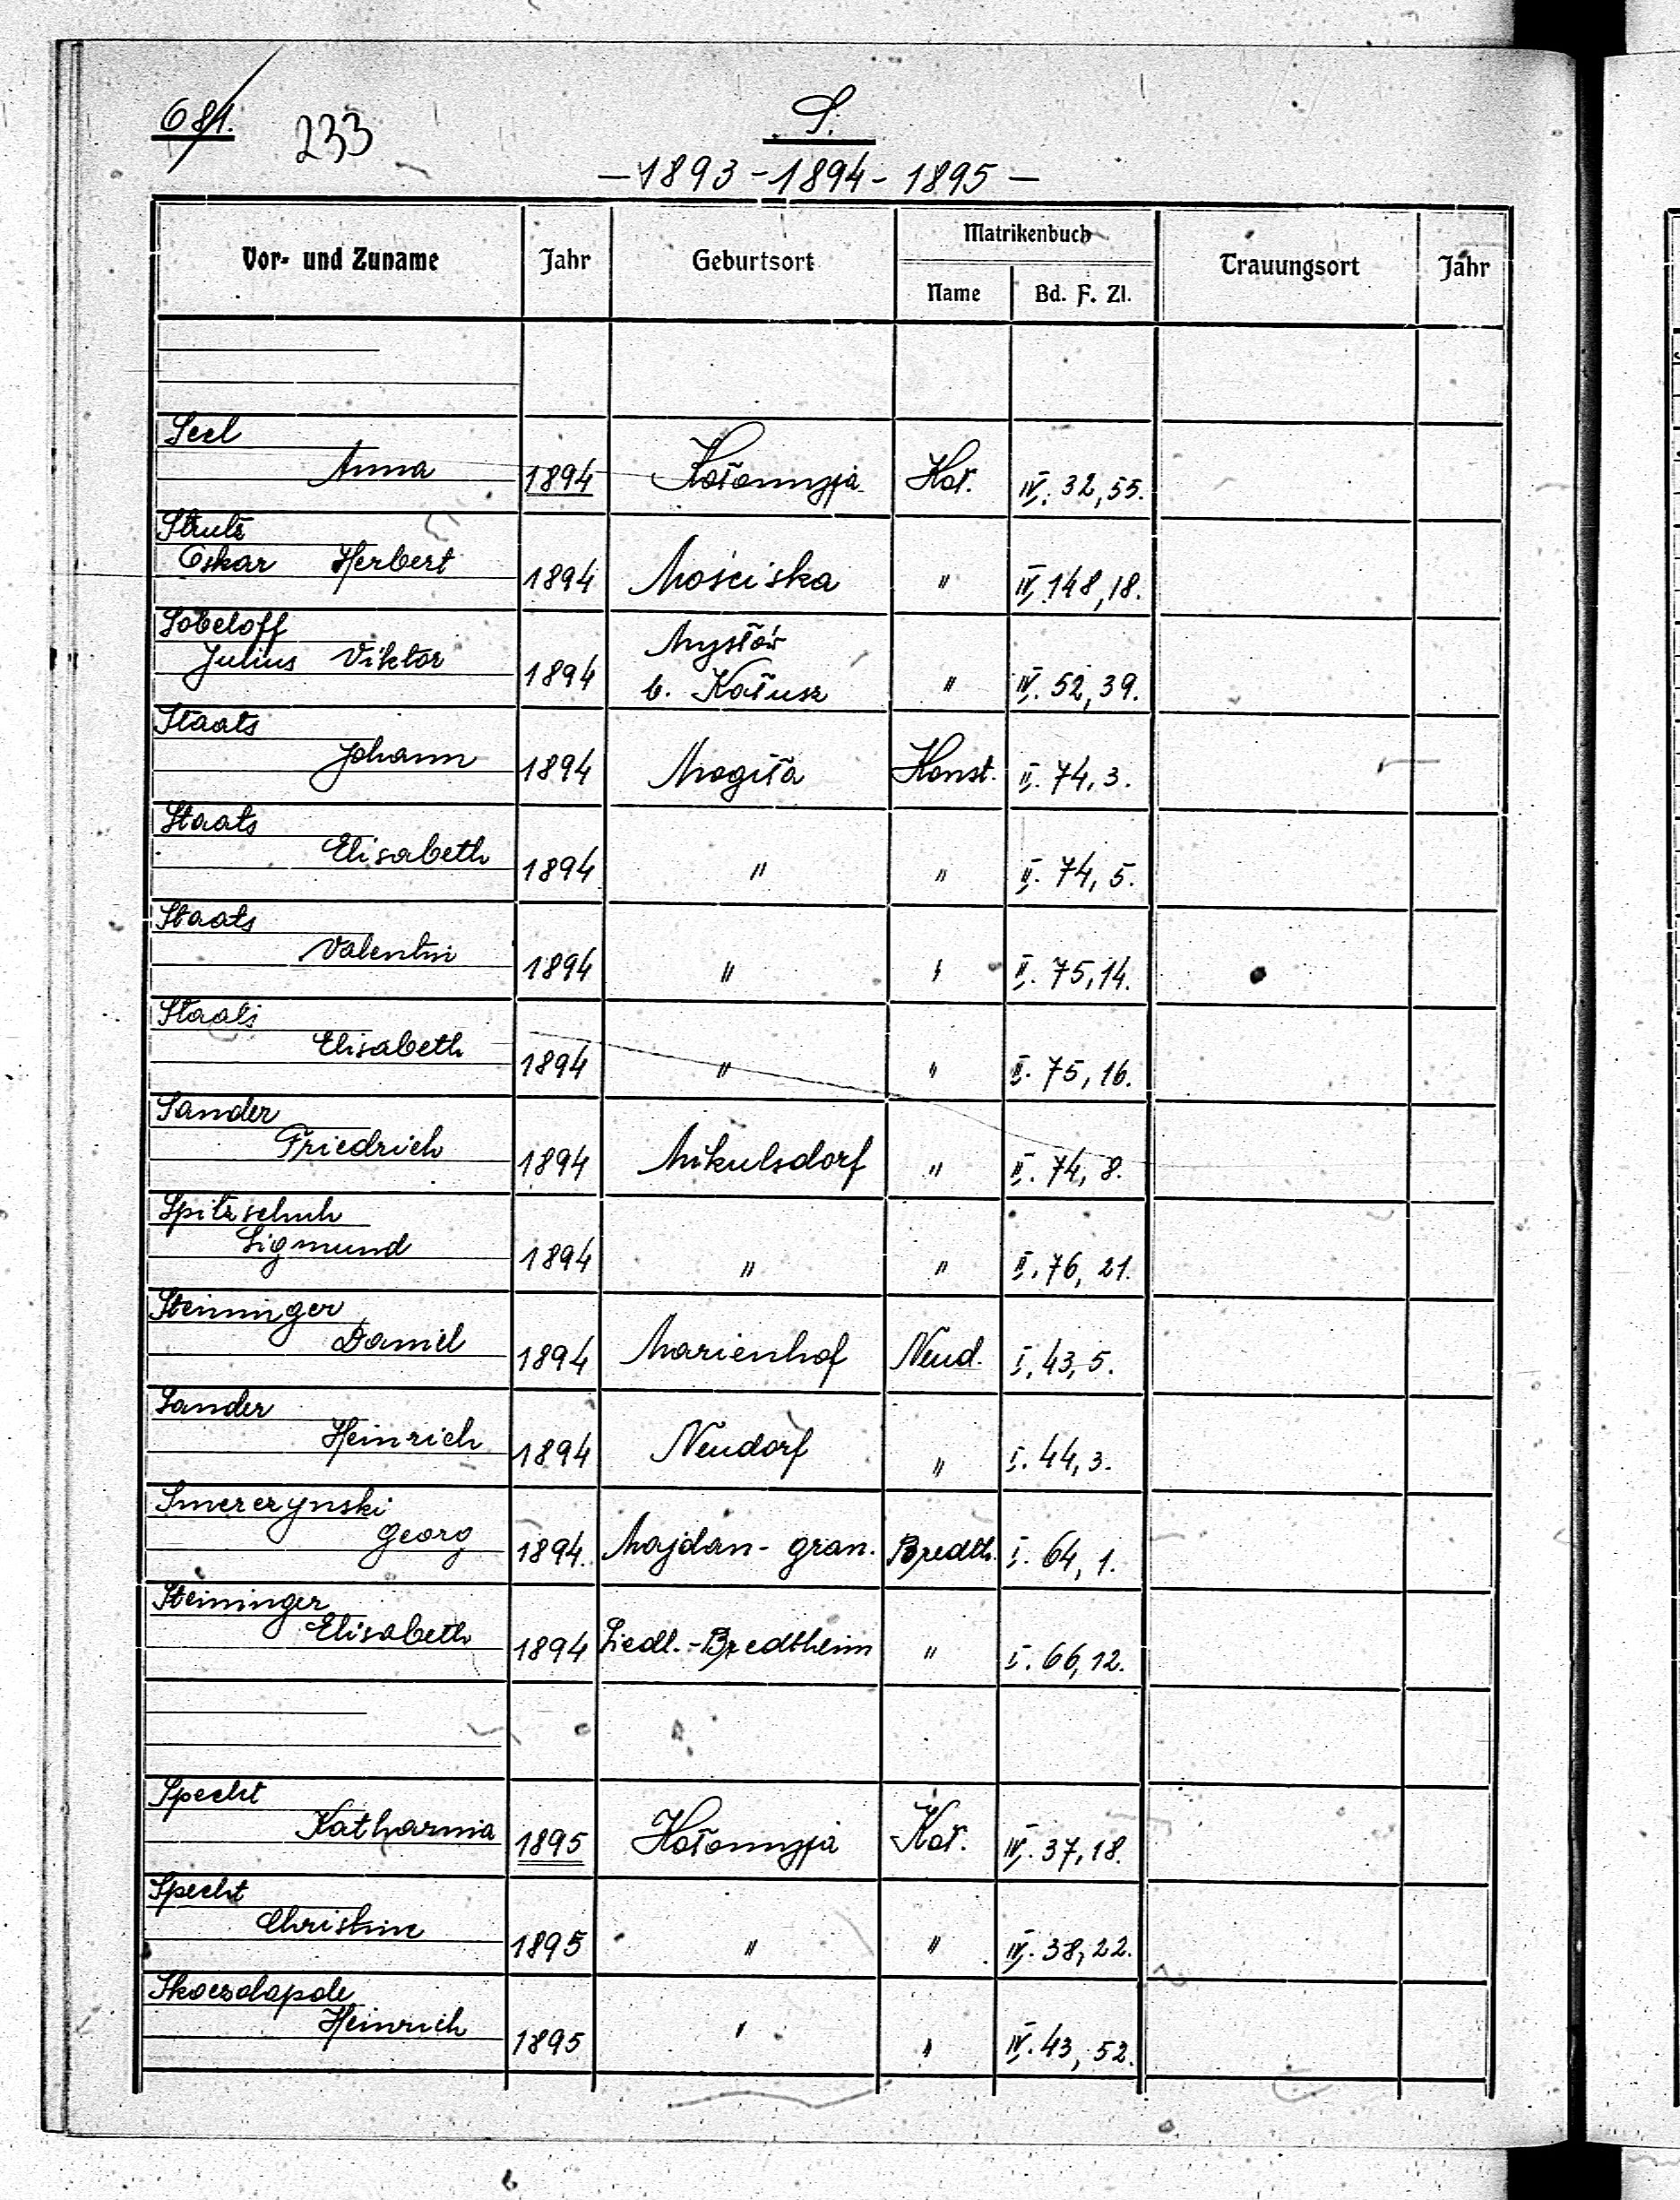 681. 233
S.
– 1893 - 1894 - 1895 –
Vor- und Zuname Jahr Geburtsort Matrikenbuch Trauungsort Jahr
Name Bd. F. Zl.
Seel
Anna 1894 Kołomyja Koł. IV. 32, 55.
Strutz
Oskar Herbert 1894 Mościska " IV. 148, 18.
Sobeloff Mysłów
Julius Viktor 1894 b. Kałusz " IV. 52, 39.
Staats
Johann 1894 Mogiła Konst. II. 74, 3.
Staats
Elisabeth 1894 " " II. 74, 5.
Staats
Valentin 1894 " " II. 75, 14.
Staats
Elisabeth 1894 " " II. 75, 16.
Sander
Friedrich 1894 Mikulsdorf " II. 74, 8.
Spitzschuh
Sigmund 1894 " " II. 76, 21.
Steininger
Daniel 1894 Marienhof Neud. I. 43, 5.
Sander
Heinrich 1894 Neudorf " I. 44, 3.
Smerezynski
Georg 1894. Majdan - gran. Bredth. I. 64, 1.
Steininger
Elisabeth 1894 Siedl. - Bredtheim " I. 66, 12.
Specht
Katharina 1895 Kołomyja Koł. IV. 37, 18.
Specht
Christine 1895 " " IV. 38, 22.
Heinrich 1895 " " IV. 43, 52.